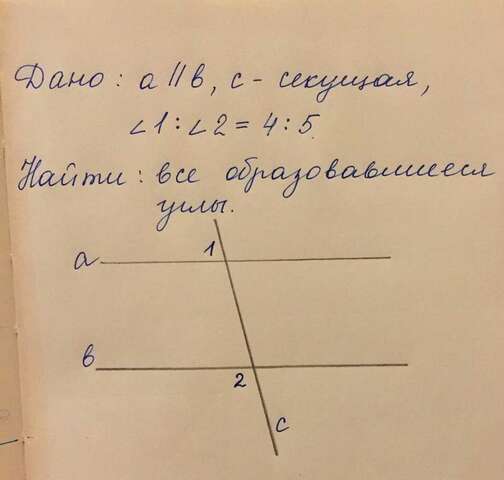 Дано: a || b, c - секущая,
∠1 : ∠2 = 4 : 5.
Найти: все образовавшиеся
углы.
a
1
b
2
c